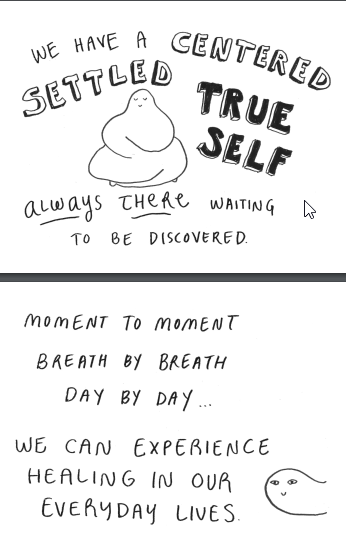 WE HAVE A CENTERED
SETTLED TRUE
SELF
always THERE WAITING
TO BE DISCOVERED.
MOMENT TO MOMENT
BREATH BY BREATH
DAY BY DAY...
WE CAN EXPERIENCE
HEALING IN OUR
EVERYDAY LIVES.